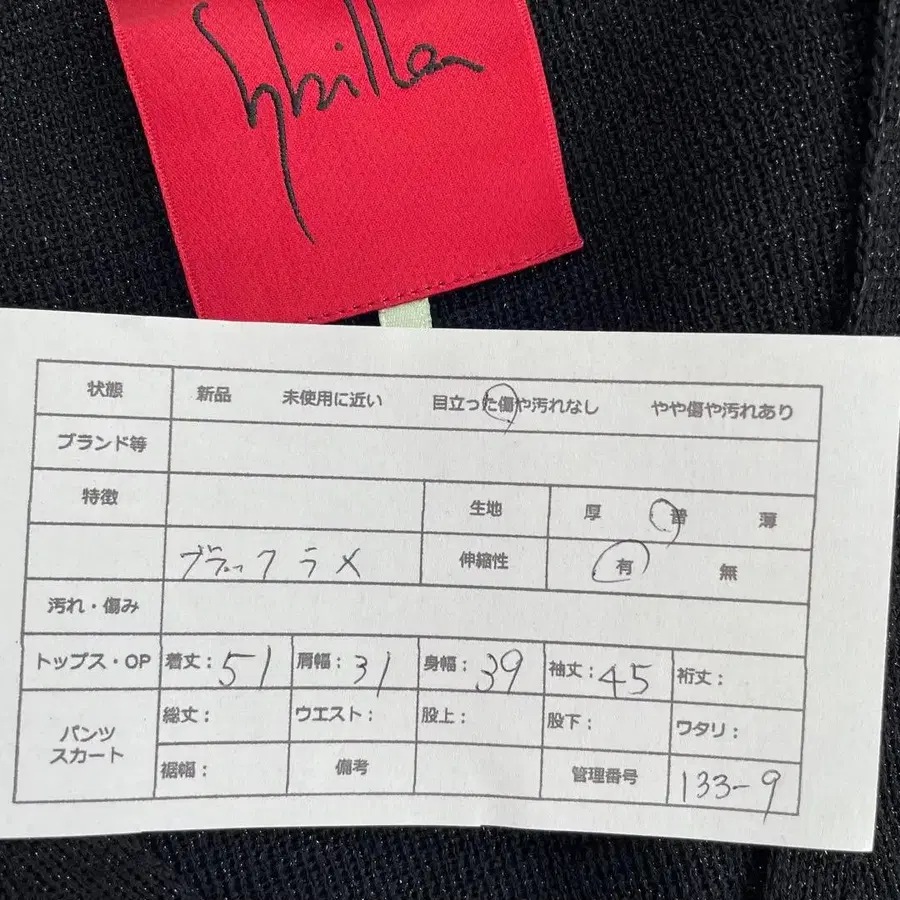 Sybilla
状態 新品 未使用に近い 目立った傷や汚れなし やや傷や汚れあり
ブランド等
特徴 生地 厚 普 薄
ブラックラメ 伸縮性 有 無
汚れ・傷み
トップス・OP 着丈:51 肩幅:31 身幅:39 袖丈:45 裄丈:
パンツ スカート 総丈: ウエスト: 股上: 股下: ワタリ:
裾幅: 備考 管理番号 133-9